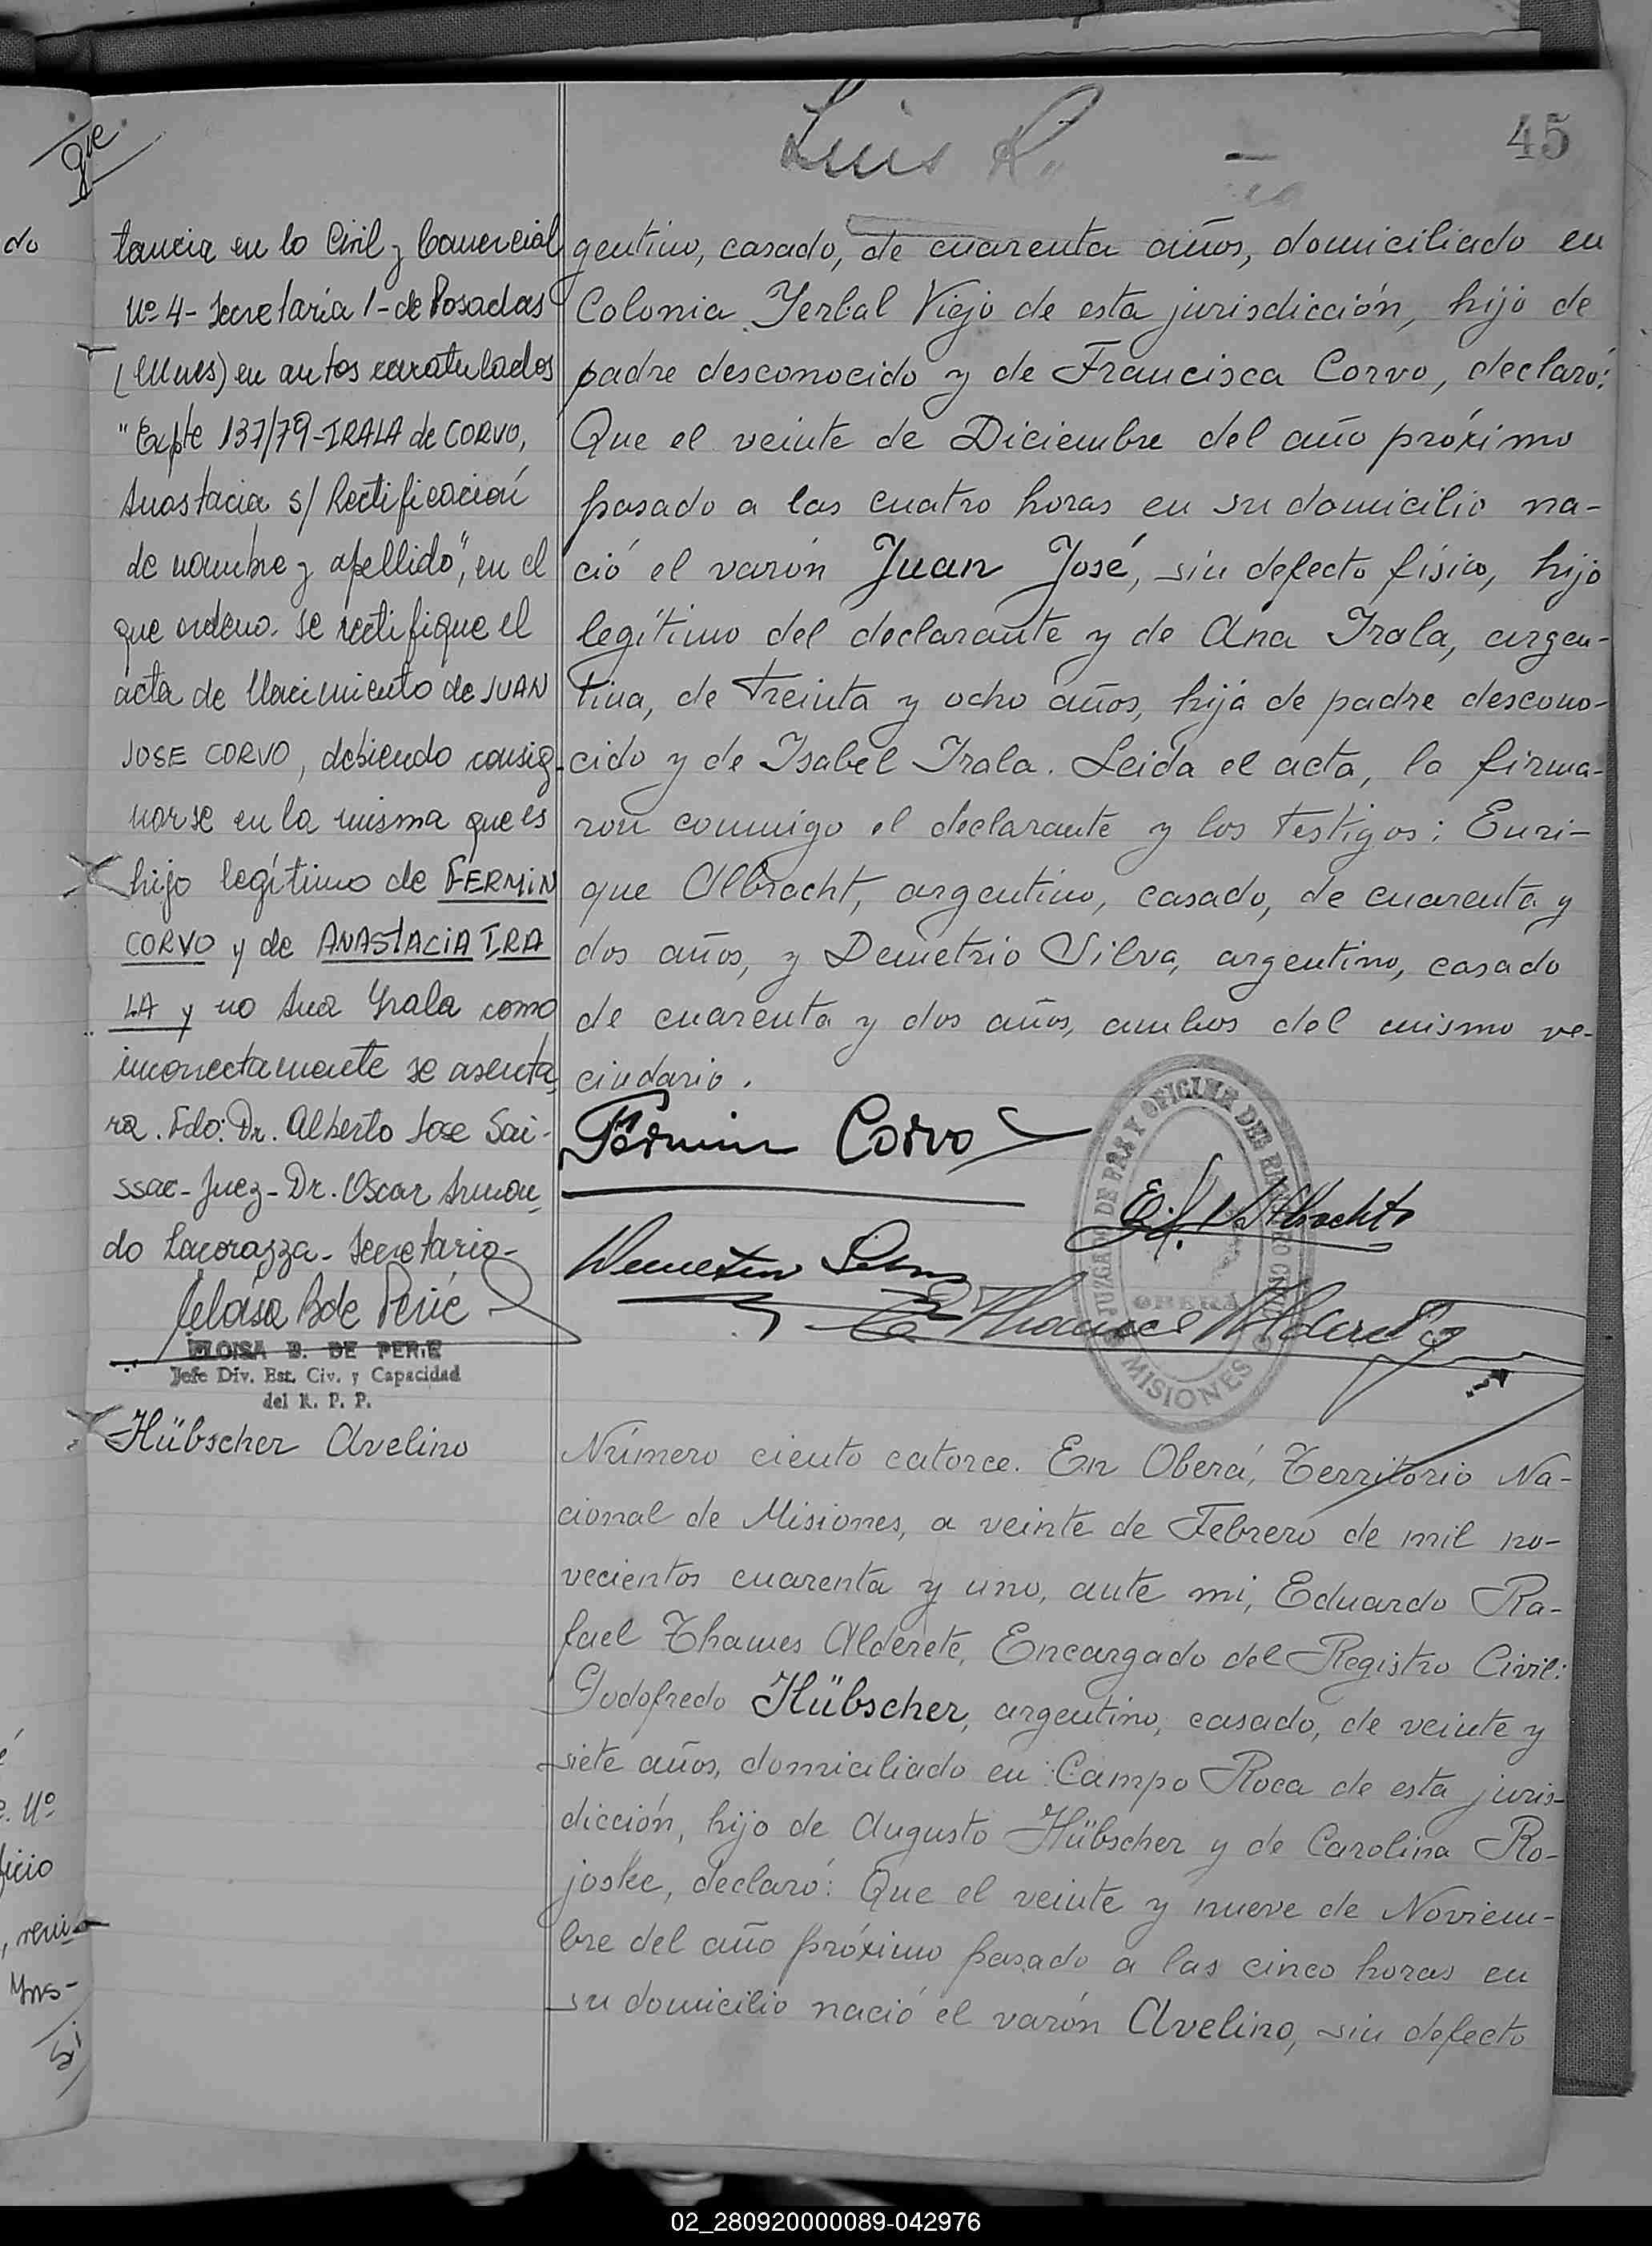 Luis R.
45
do
tancia en lo Civil y Comercial
Nº 4- Secretaría 1- de Posadas
(Mnes) en autos caratulados
"Expte 137/79-IRALA de CORVO,
Anastacia s/ Rectificación
de nombre y apellido", en el
que ordena se rectifique el
acta de Nacimiento de JUAN
JOSE CORVO, debiendo consig-
narse en la misma que es
hijo legítimo de FERMIN
CORVO y de ANASTACIA IRA
LA y no Ana Yrala como
incorrectamente se asenta
ra. Fdo: Dr. Alberto Jose Sai-
ssac- Juez- Dr. Oscar Arman
do Lacorazza- Secretario-
ELOISA B. DE PERIE
Jefe Div. Est. Civ. y Capacidad
del R. P. P.
Hübscher Avelino
gentino, casado, de cuarenta años, domiciliado en
Colonia Yerbal Viejo de esta jurisdicción, hijo de
padre desconocido y de Francisca Corvo, declaró:
Que el veinte de Diciembre del año próximo
pasado a las cuatro horas en su domicilio na-
ció el varón Juan José, sin defecto físico, hijo
legítimo del declarante y de Ana Irala, argen-
tina, de treinta y ocho años, hija de padre descono-
cido y de Isabel Irala. Leida el acta, la firma-
ron conmigo el declarante y los testigos: Enri-
que Albracht, argentino, casado, de cuarenta y
dos años, y Demetrio Silva, argentino, casado
de cuarenta y dos años, ambos del mismo ve-
cindario.
Fermin Corvo
E. Albracht
Demetrio Silva
E Thames Alderete
JUZGADO DE PAZ Y OFICINA DEL REGISTRO CIVIL
OBERÁ
MISIONES
Número ciento catorce. En Oberá, Territorio Na-
cional de Misiones, a veinte de Febrero de mil no-
vecientos cuarenta y uno, ante mi, Eduardo Ra-
fael Thames Alderete, Encargado del Registro Civil:
Godofredo Hübscher, argentino, casado, de veinte y
siete años, domiciliado en Campo Roca de esta juris-
dicción, hijo de Augusto Hübscher y de Carolina Ro-
joske, declaró: Que el veinte y nueve de Noviem-
bre del año próximo pasado a las cinco horas en
su domicilio nació el varón Avelino, sin defecto
Nº
ficio
02_280920000089-042976